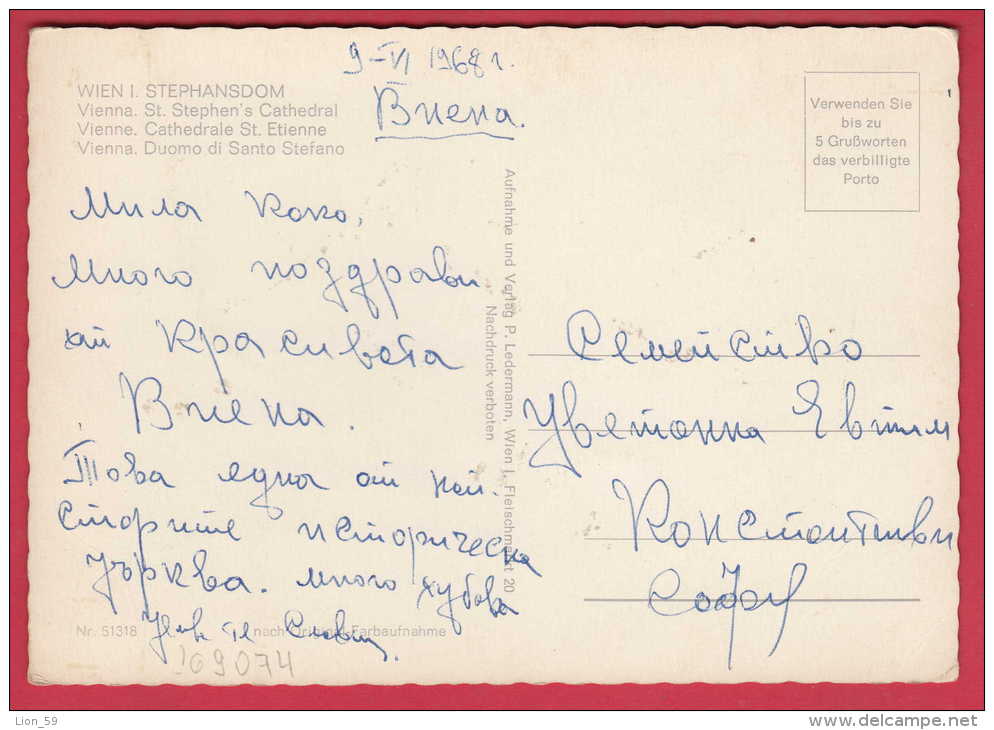 9-VI 1968 г.
Виена.
WIEN I. STEPHANSDOM
Vienna. St. Stephen's Cathedral
Vienne. Cathedrale St. Etienne
Vienna. Duomo di Santo Stefano
Verwenden Sie
bis zu
5 Grußworten
das verbilligte
Porto
Мила Коко,
много поздрави
от красивата
Виена.
Това една от най-
старите историческа
църква. много хубова
Aufnahme und Verlag P. Ledermann, Wien I, Fleischmarkt 20
Nachdruck verboten
Семейство
Цветанка Евтим
Константинови
София
Nr. 51318 nach Original-Farbaufnahme
169074
Lion_59
www.delcampe.net